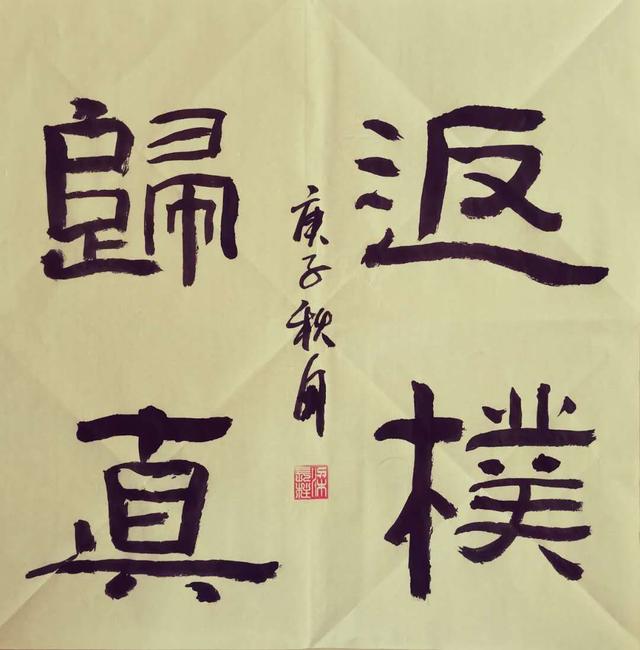 返樸
歸真
庚子秋